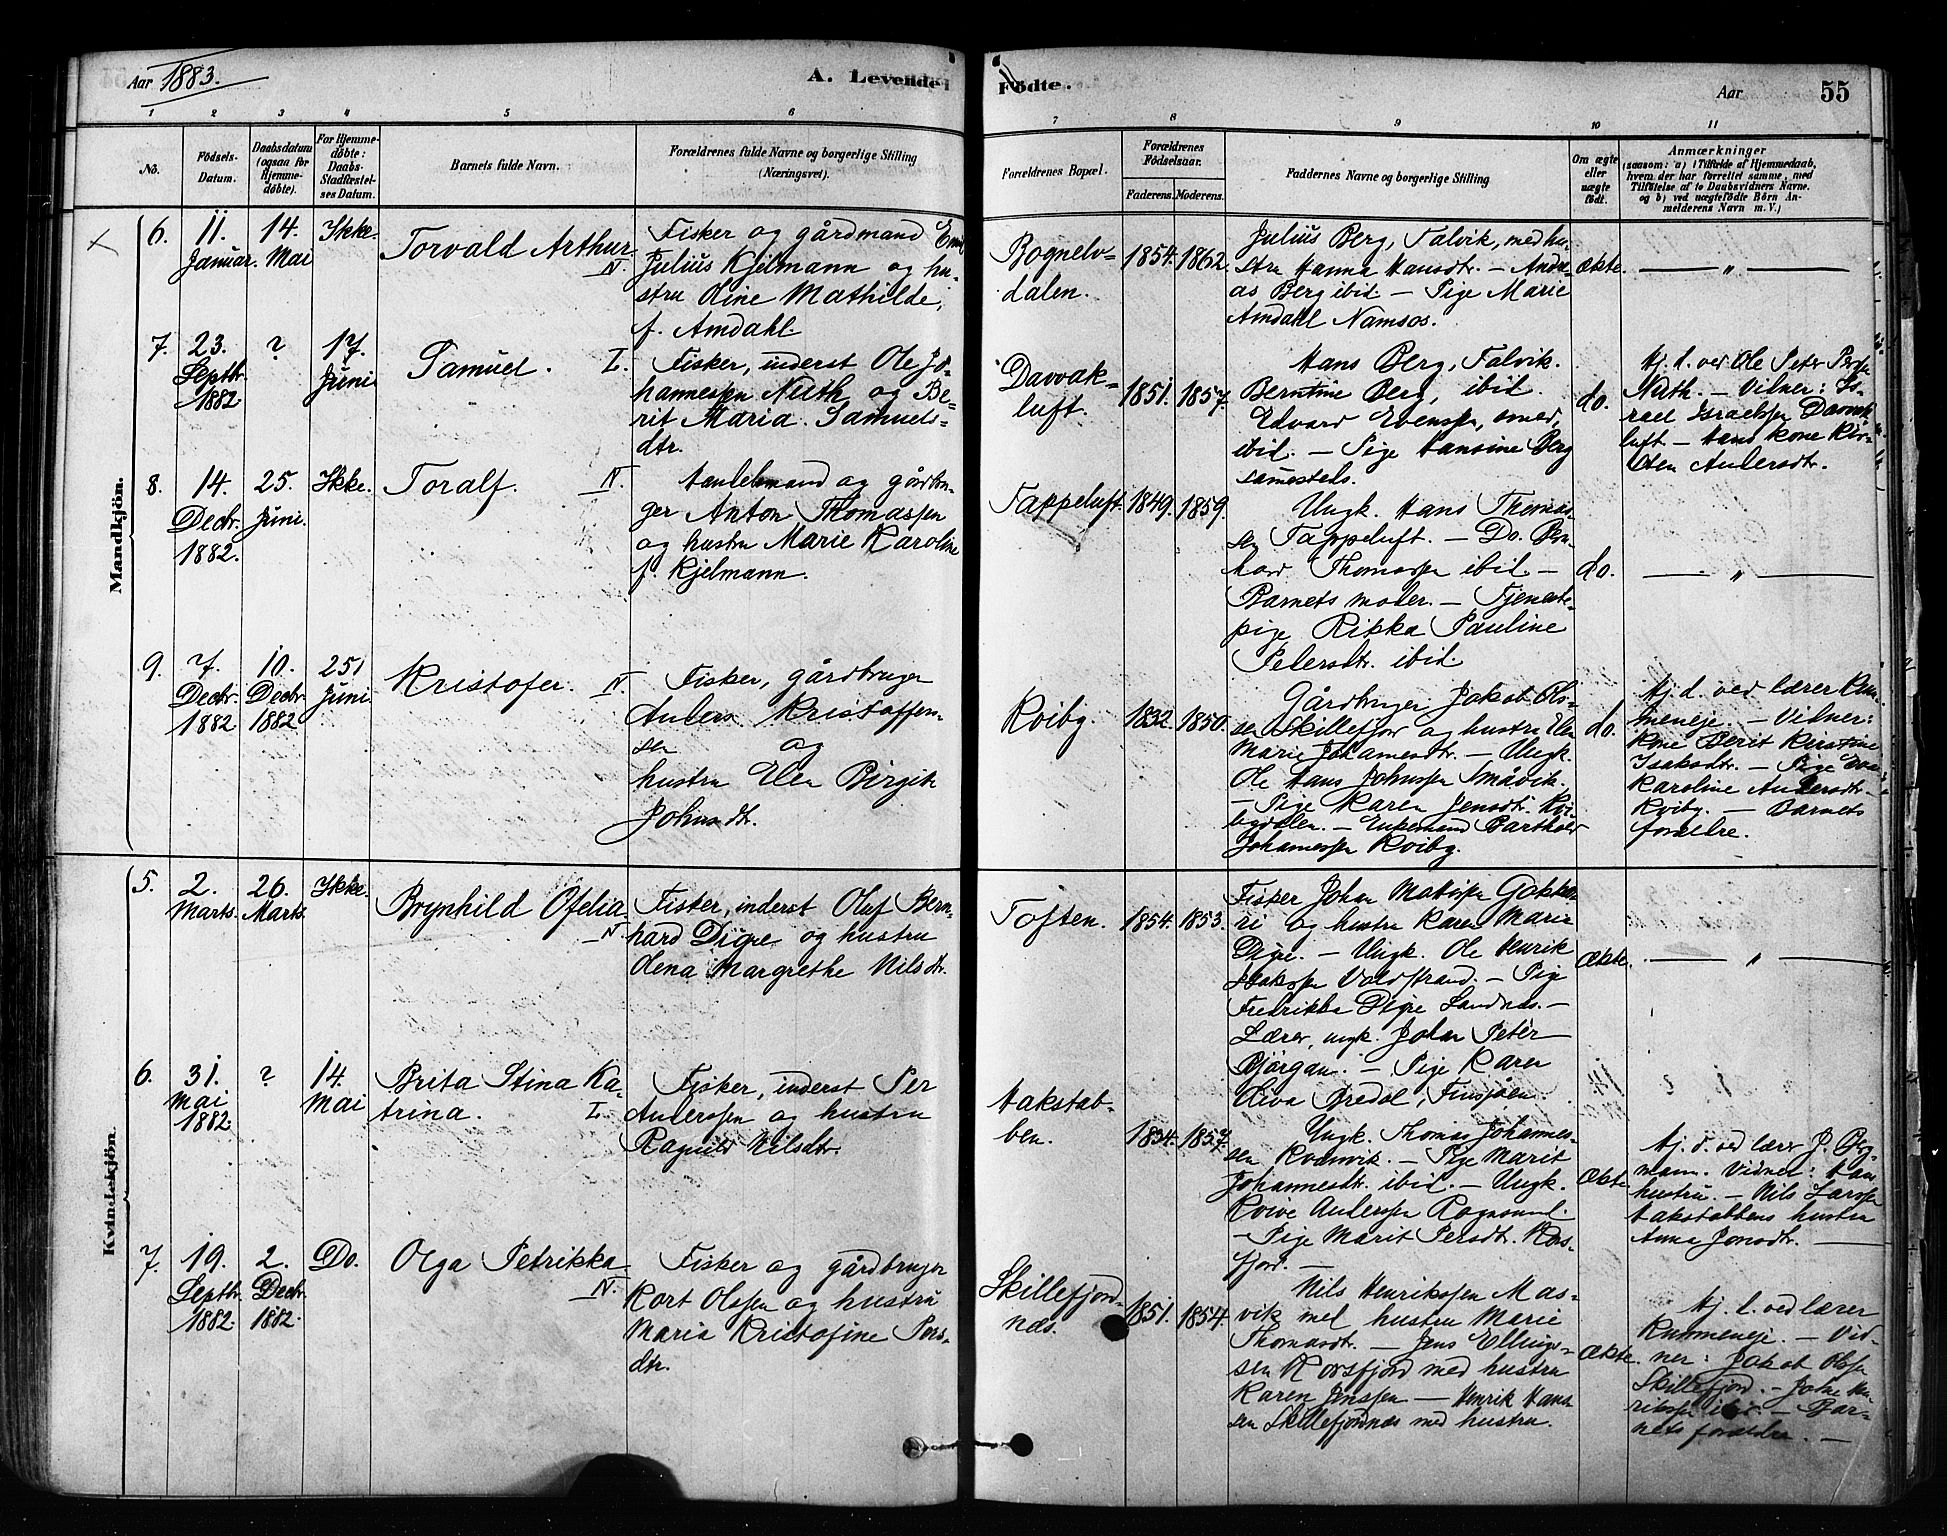 Aar 1883.
A. Levende
Födte.
Aar
55
1 2 3 4 5 6 7 8 9 10 11
No.
Födsels-
Datum.
Daabsdatum
(ogsaa for
Hjemme-
döbte).
For Hjemme-
döbte:
Daabs-
Stadfæstel-
ses Datum.
Barnets fulde Navn.
Forældrenes fulde Navne og borgerlige Stilling
(Næringsvei).
Forældrenes Bopæl.
Forældrenes
Födselsaar.
Faderens.
Moderens.
Faddernes Navne og borgerlige Stilling
Om ægte
eller
uægte
födt.
Anmærkninger
(saasom: a) i Tilfælde af Hjemmedaab,
hvem der har forrettet samme, med
Tilföielse af to Daabsvidners Navne.
og b) ved uægtefödte Börn An-
melderens Navn m. V.)
Mandkjön.
6.
11.
Januar.
14.
Mai
Ikke.
Torvald Arthur
N.
Fisker og gårdmand Emil
Julius Kjelmann og hu-
stru Oline Mathilde,
f. Amdahl.
Bognelv-
dalen.
1854.
1862.
Julius Berg, Talvik, med hu-
stru Hanna Hansdtr. – Andre-
as Berg ibid – Pige Marie
Amdahl Namsos.
Ækte.
— „ —
7.
23.
Septbr.
1882
?
17.
Juni
Samuel.
L.
Fisker, inderst Ole Jo-
hannessen Nuth og Be-
rit Maria Samuels-
dtr.
Davvak-
luft.
1851.
1857.
Hans Berg, Talvik.
Berntine Berg, ibid.
Edvard Evensen, smed,
ibid – Pige Hansine Berg
samesteds.
do.
Hj. d. ved Ole Peter
Nuth. – Vidner: Is-
rael Israelssen Davvak-
luft. – Hans kone Kir-
sten Andersdtr.
8.
14.
Decbr.
1882.
25.
Juni.
Ikke.
Toralf.
N.
Handelsmand og gårdbru-
ger Anton Thomassen
og hustru Marie Karoline
f. Kjelmann.
Tappeluft.
1849.
1859.
Ungk. Hans Thomas-
sen Tappeluft. – Do. Bern-
hard Thomassen ibid. –
Barnets moder. – Tjeneste-
pige Rikka Pauline
Petersdtr. ibid.
do.
— „ —
9.
7.
Decbr.
1882
10.
Decbr.
1882
25.
Juni.
Kristofer.
N.
Fisker, gårdbruger
Anders Kristoffer-
sen og
hustru Elen Birgit
Johnsdtr.
Kviby.
1832.
1850.
Gårdbruger Jakob Ols-
sen Skillefjor og hustru Elen
Marie Johannesdtr. – Ungk.
Ole Hans Johnssen Småvik.
– Pige Karen Jensdtr. Kvi-
bydalen. – Enkemand Barthold
Johannessen Kviby.
do.
Hj. d. ved lærer Kum-
meneje. – Vidner:
Kone Berit Kirstine
Isaksdtr. – Pige
Karoline Andersdtr.
Kviby. – Barnets
forældre.
Kvindekjön.
5.
2.
Marts.
26.
Marts.
Ikke.
Brynhild Ofelia
N.
Fisker, inderst Oluf Bern-
hard Digre og hustru
Olena Margrethe Nilsdtr.
Toften.
1854.
1853.
Fisker Johan Mathissen
og hustru Karen Marie
Digre. – Ungk. Ole Henrik
Isakssen Valdstrand. – Pige
Fredrikka Digre Sandnæs. –
Lærer, ungk. Johan Peter
Bjørgan. – Pige Karen
Ækte.
— „ —
6.
31.
Mai
1882
?
14.
Mai
Brita Stina Ka-
trina.
L.
Fisker, inderst Per
Anderssen og hustru
Ragnild Nilsdtr.
Hakstab-
ben.
1854.
1857.
Ungk. Thomas Johannes-
sen Kvænvik. – Pige Marit
Johannesdtr. ibid. – Ungk.
Anderssen Rognsund.
– Pige Marit Persdtr. Kors-
fjord. –
Ækte
Hj. d. ved lærer J. Berg-
mann. Vidner: Hans
hustru. – Nils Larssen
Hakstabbens hustru
Anna Jonsdtr. –
7.
19.
Septbr.
1882.
2.
Decbr.
1882.
Do.
Olga Petrikka
N.
Fisker og gårdbruger
Kort Olssen og hustru
Maria Kristofine Pers-
dtr.
Skillefjord-
næs.
1851.
1854.
Nils Henrikssen Mas-
vik med hustru Marie
Thomasdtr. – Jens Ellings-
sen Korsfjord med hustru
Karen Jenssen – Henrik Hans-
sen Skillefjordnæs med hustru.
Ækte.
Hj. d. ved lærer
Kummeneje. – Vid-
ner: Jakob Olssen
Skillefjord. – Johan Hen-
rikssen ibid. – Bar-
nets forældre. –